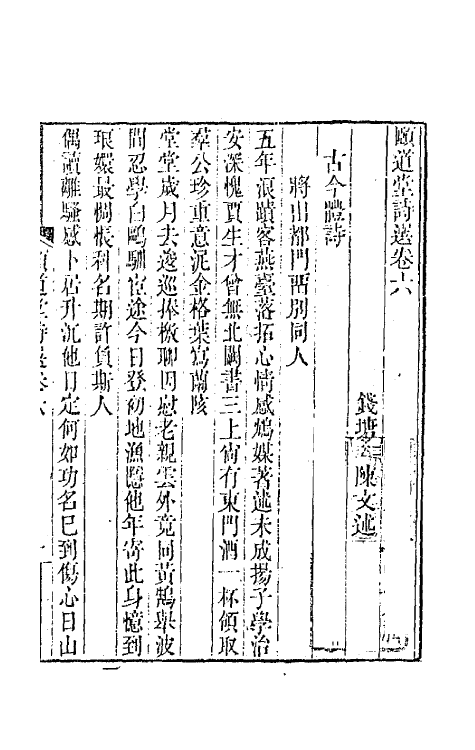 頤道堂詩選卷六
錢塘 陳文述
古今體詩
將出都門留別同人
五年浪蹟客燕臺落拓心情感鴆媒著述未成揚子學治
安深愧賈生才曾無北闕書三上尚有東門酒一杯領取
羣公珍重意泥金格葉寫蘭陔
堂堂歲月去逡巡捧檄聊因慰老親雲外竟同黃鵠舉波
間忍學白鷗馴宦途今日登初地漁隱他年寄此身憶到
琅嬛最惆悵科名期許負斯人
偶讀離騷感卜居升沉他日定何如功名已到傷心日山
頤道堂詩選卷六 一